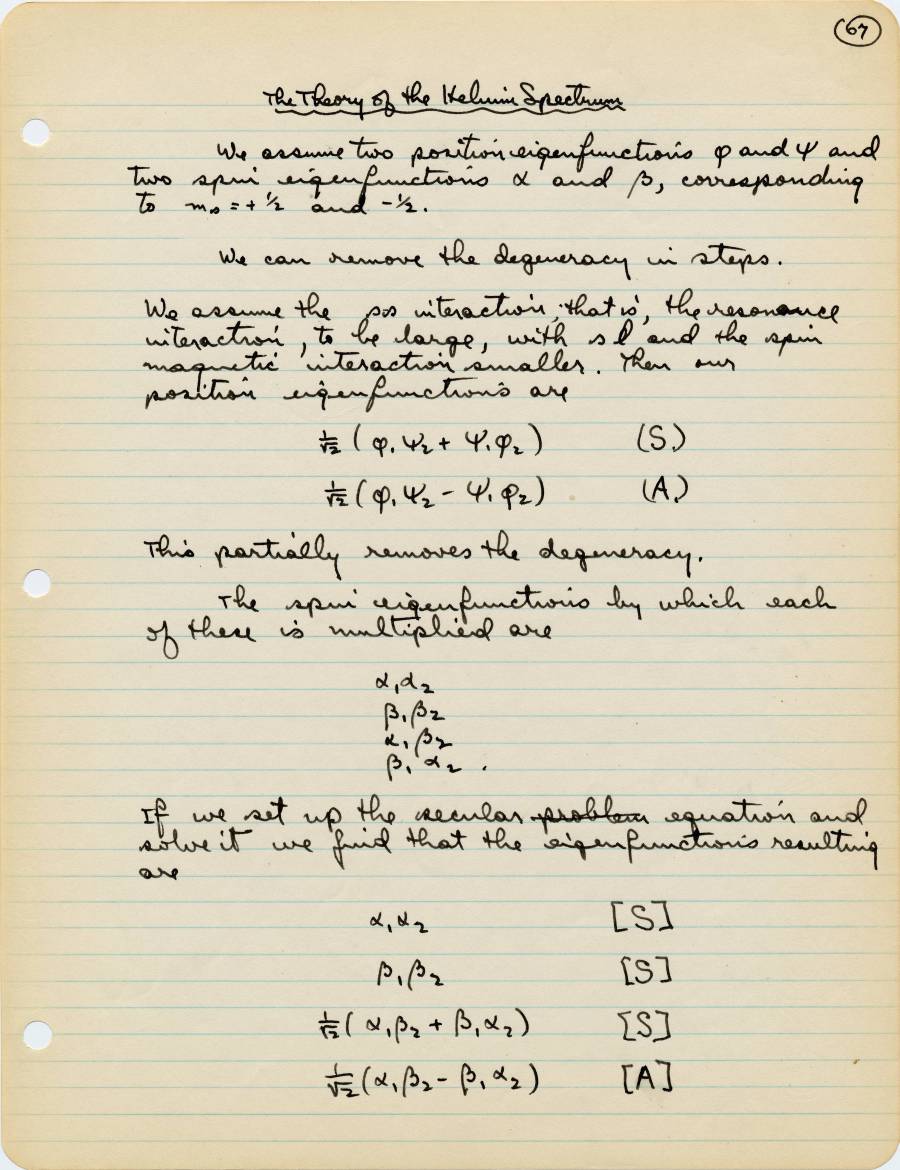 67
The Theory of the Helium Spectrum
We assume two position eigenfunctions φ and ψ and
two spin eigenfunctions α and β, corresponding
to mₛ = + ½ and - ½.
We can remove the degeneracy in steps.
We assume the ss interaction, that is, the resonance
interaction, to be large, with sl and the spin
magnetic interaction smaller. Then our
position eigenfunctions are
1/√2 ( φ₁ ψ₂ + ψ₁ φ₂ ) (S.)
1/√2 ( φ₁ ψ₂ - ψ₁ φ₂ ) (A.)
This partially removes the degeneracy.
The spin eigenfunctions by which each
of these is multiplied are
α₁α₂
β₁β₂
α₁β₂
β₁α₂.
If we set up the secular problem equation and
solve it we find that the eigenfunctions resulting
are
α₁α₂ [S]
β₁β₂ [S]
1/√2 ( α₁β₂ + β₁α₂ ) [S]
1/√2 ( α₁β₂ - β₁α₂ ) [A]